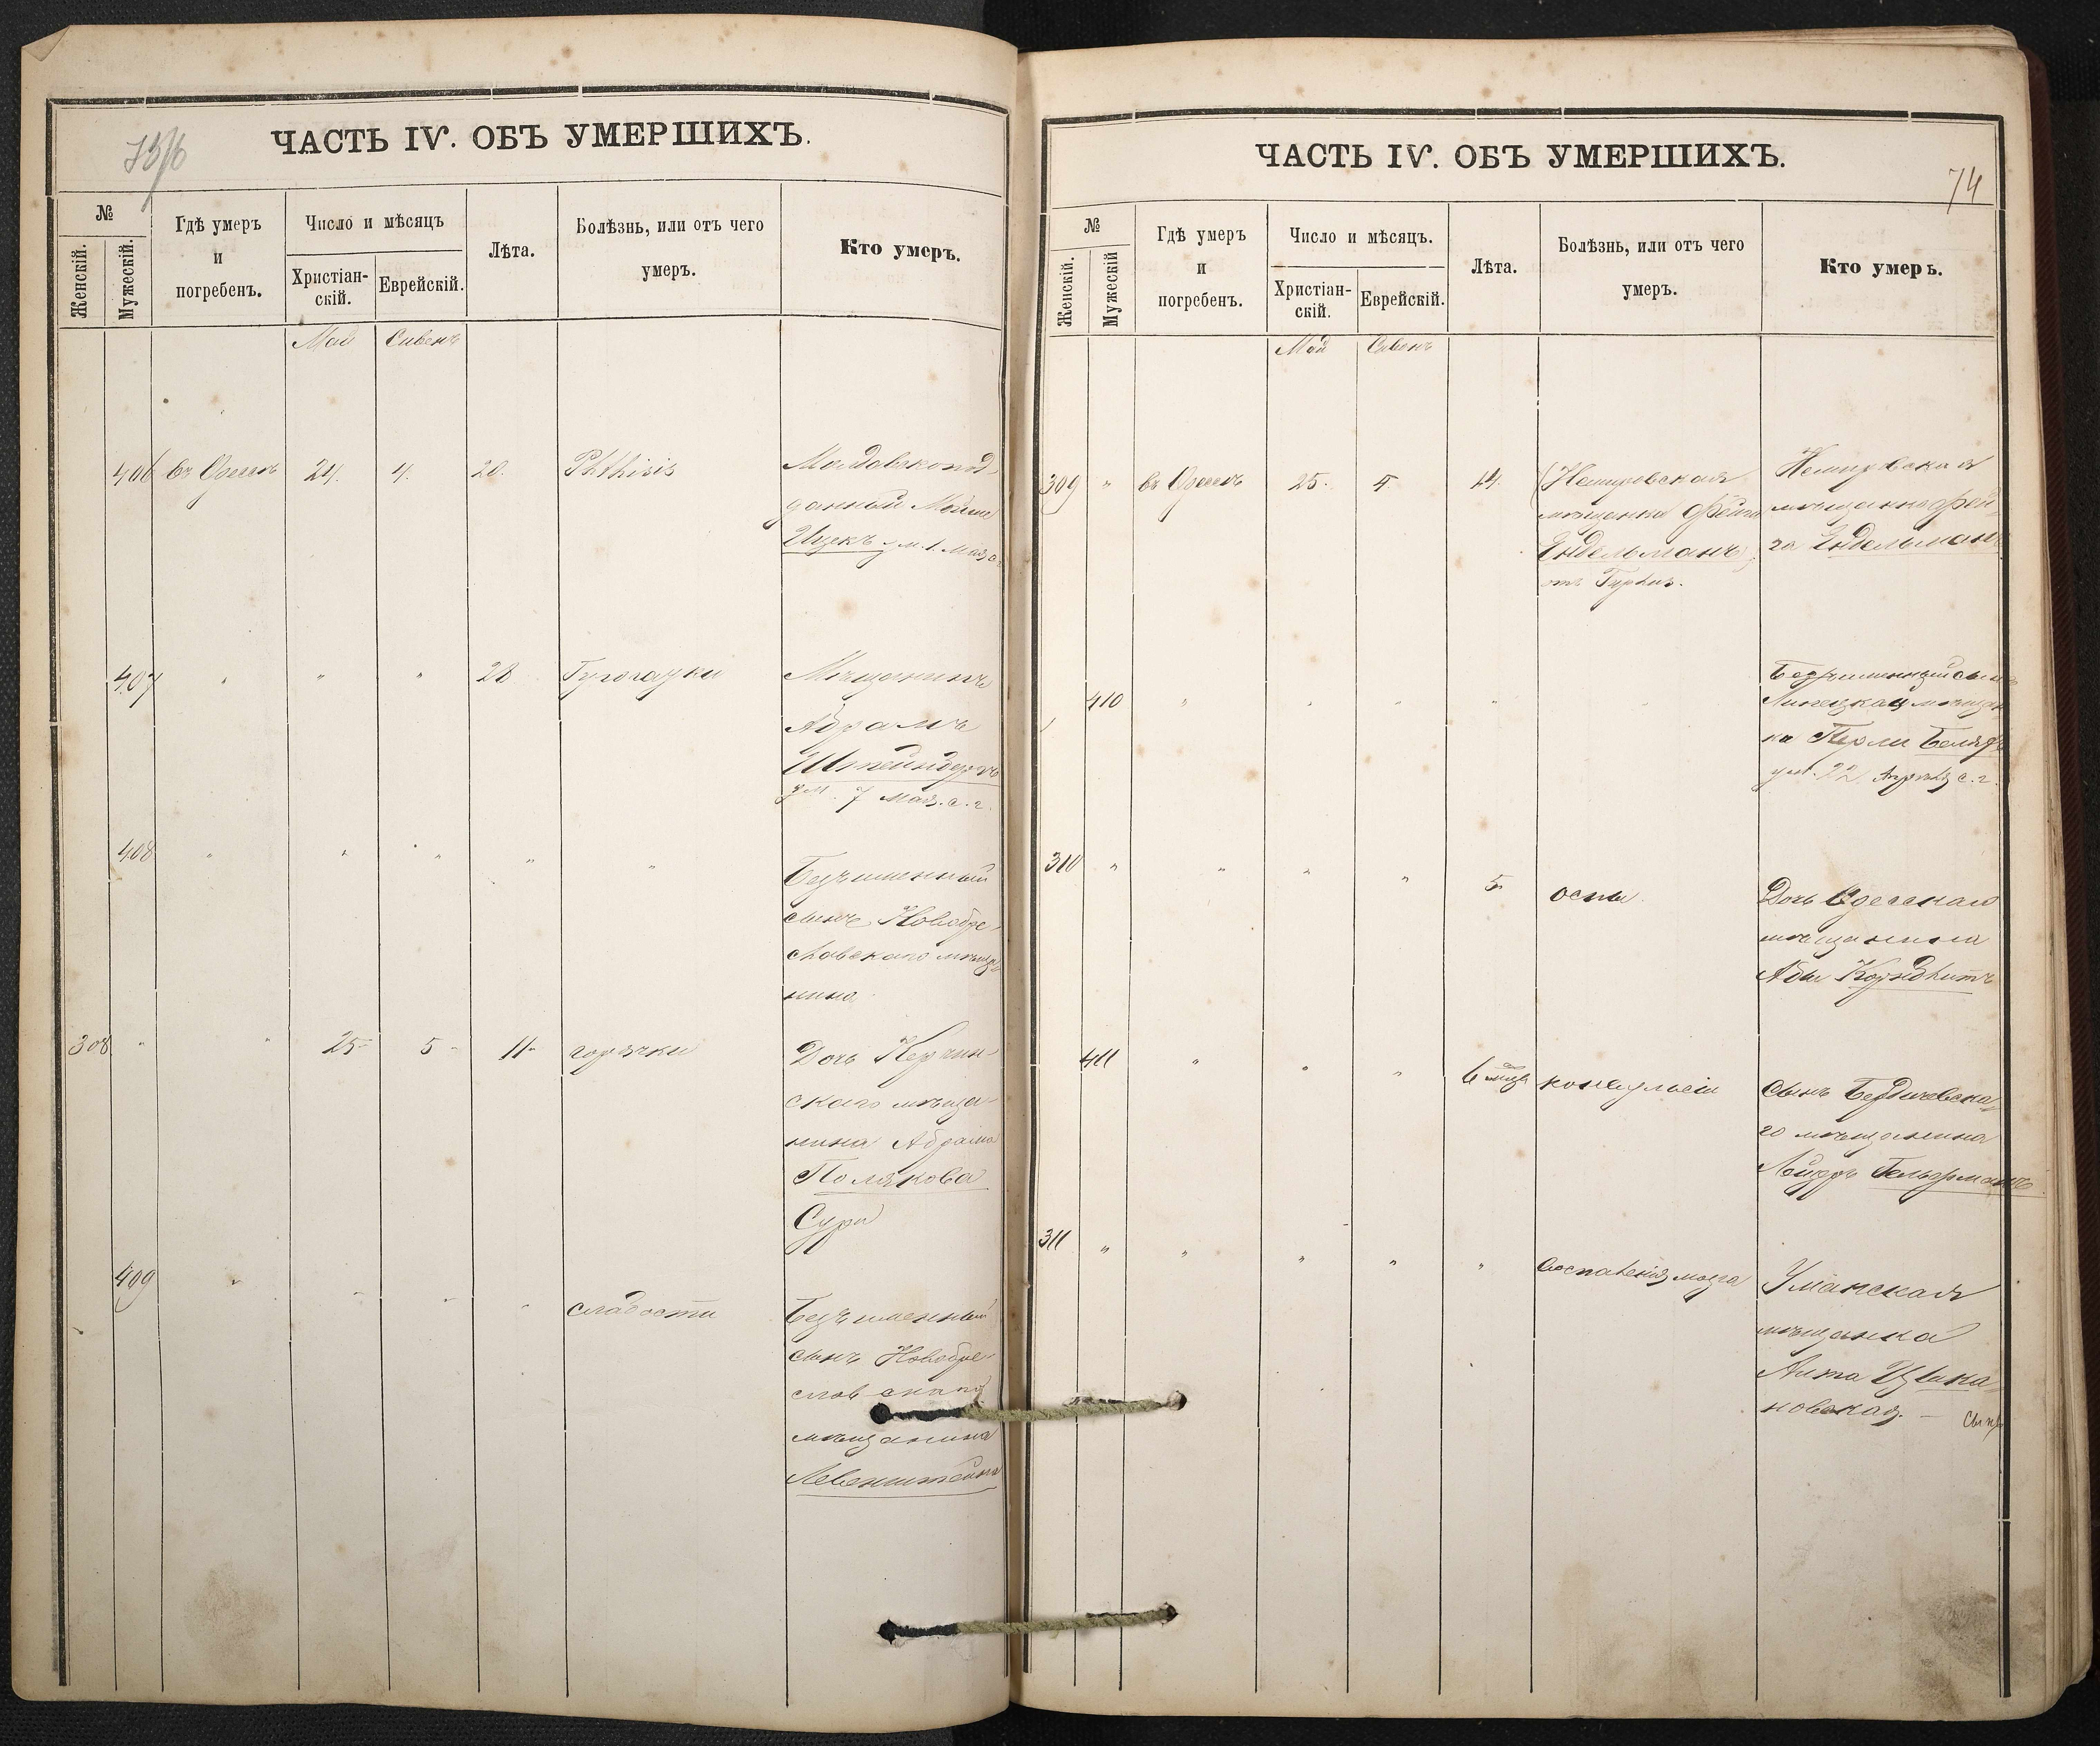 ЧАСТЬ IV. ОБЪ УМЕРШИХЪ.
№
Женскій.
Мужескій.
Гдѣ умеръ
и
погребенъ.
Число и мѣсяцъ
Христіан-
скій.
Еврейскій.
Лѣта.
Болѣзнь, или отъ чего
умеръ.
Кто умеръ.
Май Сивенъ
406 въ Одессѣ 24. 4. 20. Phthisis Молдавскопод-
данный Мойше
Ицекъ ум. 1. Мая с.
407 " " " 28 Мѣщанинъ
Абрамъ
Штейнбергъ
ум. 7 мая. с. г.
408 " " " " "
Безъименный
сынъ Новобре-
славскаго мѣща-
нина
308 " " 25 5 11 горячки Дочь Керчин-
скаго мѣща-
нина Абрама
Полякова
Сура
409 " " " " слабости Безъименный
сынъ Новобре-
славскаго
мѣщанина
Левенштейнъ
ЧАСТЬ IV. ОБЪ УМЕРШИХЪ.
74
№
Женскій.
Мужескій
Гдѣ умеръ
и
погребенъ.
Число и мѣсяцъ.
Христіан-
скій.
Еврейскій.
Лѣта.
Болѣзнь, или отъ чего
умеръ.
Кто умеръ.
Май Сивенъ
309 " въ Одессѣ 25. 5 14. (Немировская Немировская
мѣщанка Фейга мѣщанка Фей-
Эндельманъ) га Эндельманъ
отъ
410 " " " " " Безъименный сынъ
Липецкой мѣщан-
ка Перли
ум. 22. Апрѣля с. г.
310 " " " " 5 оспы Дочь Одесскаго
мѣщанина
Абы
411 " " " 6 мѣся конвульсіи Сынъ Бердичевска-
го мѣщанина
Гельерманъ
311 " " " " " воспаленія мозга Уманская
мѣщанка
новская. —